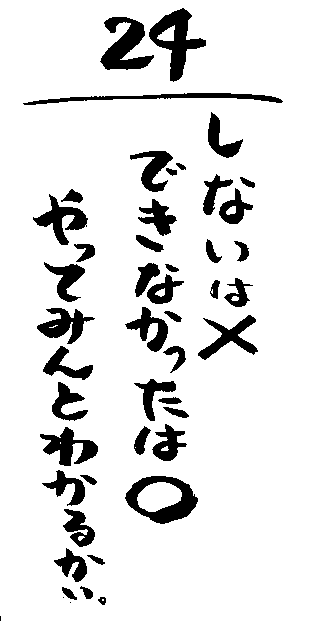 24
しないは×
できなかったは○
やってみんとわかるかい。